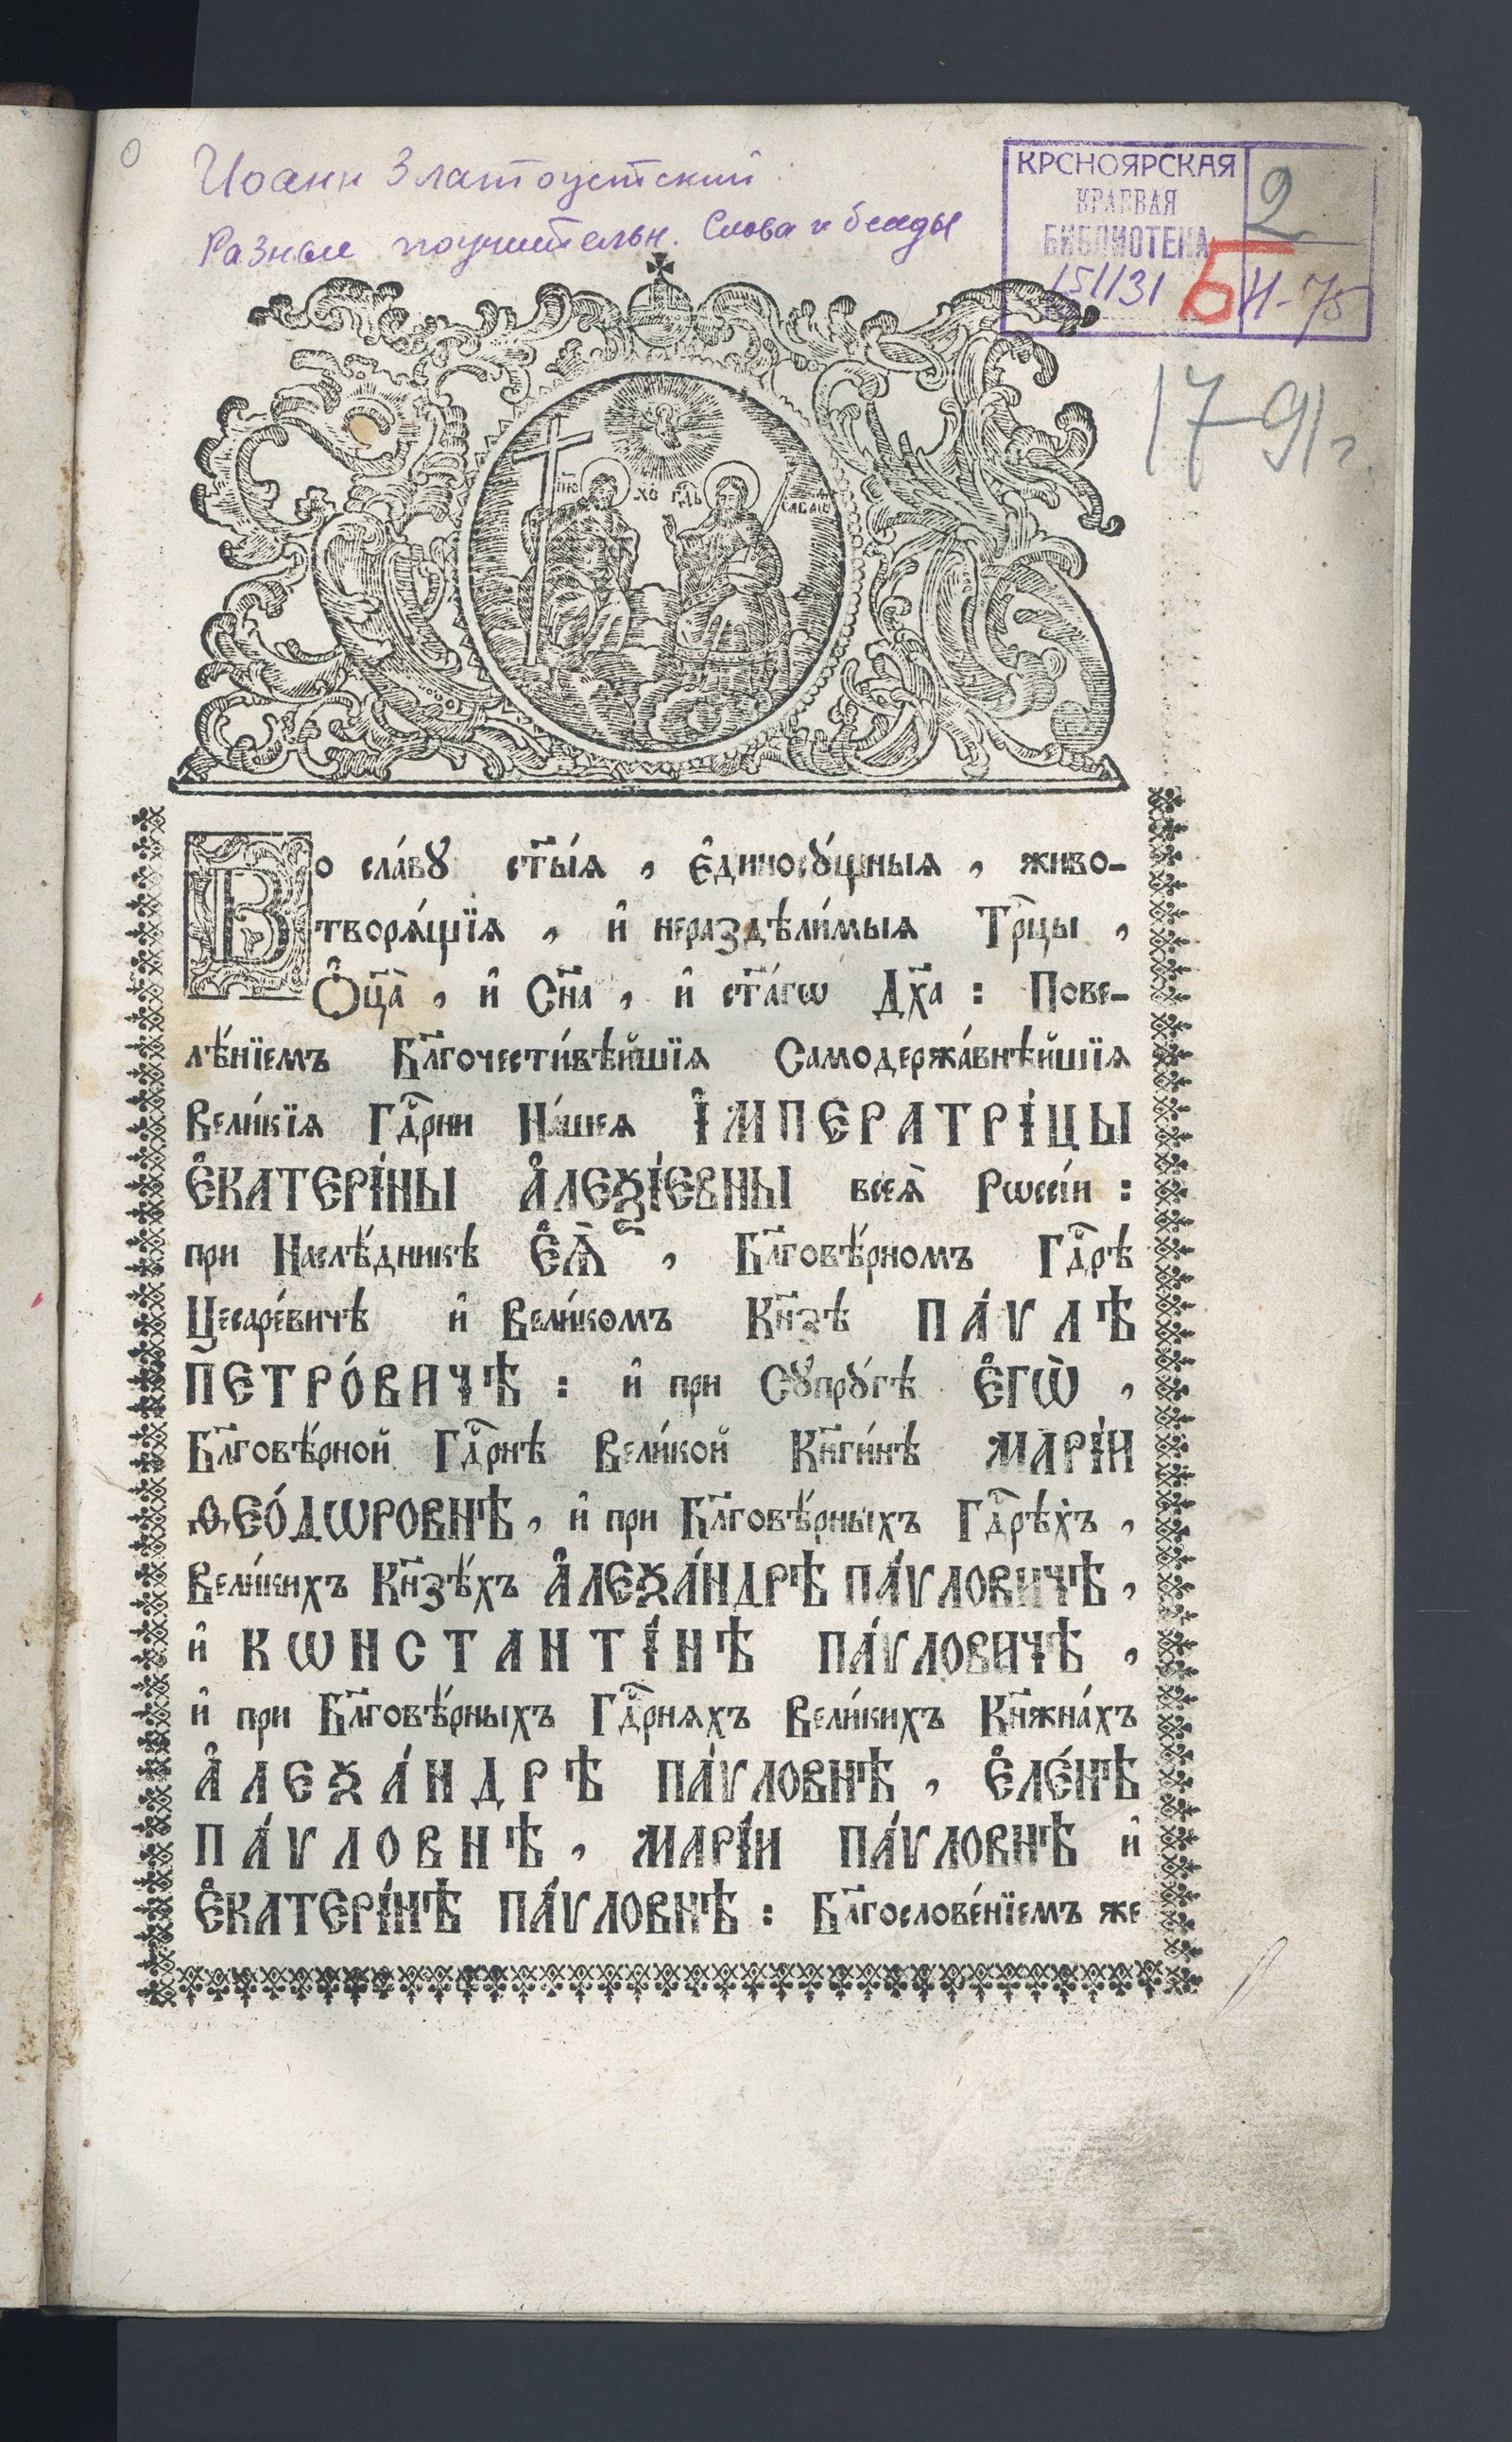 Иоанн Златоустский
Разные поучительн. Слова и беседы
КРСНОЯРСКАЯ
КРАЕВАЯ
БИБЛИОТЕКА
151131
Б
2
И-75
1791 г.
І҃ИС ХС
ГДЬ
САВАОѲ
Во сла́вꙋ ст҃ы́ѧ , є҆диносꙋ́щныѧ , живо-
творѧ́щїѧ , и҆ нераздѣли́мыѧ Трⷪ҇цы ,
Ѻ҆ц҃а̀ , и҆ Сн҃а , и҆ ст҃а́гѡ Дх҃а : Пове-
лѣ́нїемъ Бл҃гочести́вѣйшїѧ Самодержа́внѣйшїѧ
Вели́кїѧ Гдⷭ҇рни На́шеѧ І҆МПЕРАТРІ́ЦЫ
Є҆КАТЕРІ́НЫ А҆ЛЕѮІ́ЕВНЫ всеѧ̀ Рѡссі́и :
при Наслѣ́дникѣ Є҆Ѧ̀ , Бл҃говѣ́рномъ Гдⷭ҇рѣ
Цесаре́вичѣ и҆ Вели́комъ Кн҃зѣ ПА́ѴЛѢ
ПЕТРО́ВИЧѢ : и҆ при Сꙋпрꙋ́гѣ Є҆ГѠ̀ ,
Бл҃говѣ́рной Гдⷭ҇рнѣ Вели́кой Кн҃ги́нѣ МАРІ́И
ѲЕО́ДѠРОВНѢ , и҆ при Бл҃говѣ́рныхъ Гдⷭ҇рѣхъ ,
Вели́кихъ Кн҃зѣ́хъ А҆ЛЕѮА́НДРѢ ПА́ѴЛОВИЧѢ ,
и҆ КѠНСТАНТІ́НѢ ПА́ѴЛОВИЧѢ ,
и҆ при Бл҃говѣ́рныхъ Гдⷭ҇рнѧхъ Вели́кихъ Кн҃жна́хъ
А҆ЛЕѮА́НДРѢ ПА́ѴЛОВНѢ , Є҆ЛЕ́НѢ
ПА́ѴЛОВНѢ , МАРІ́И ПА́ѴЛОВНѢ и҆
Є҆КАТЕРІ́НѢ ПА́ѴЛОВНѢ : Бл҃гослове́нїемъ же